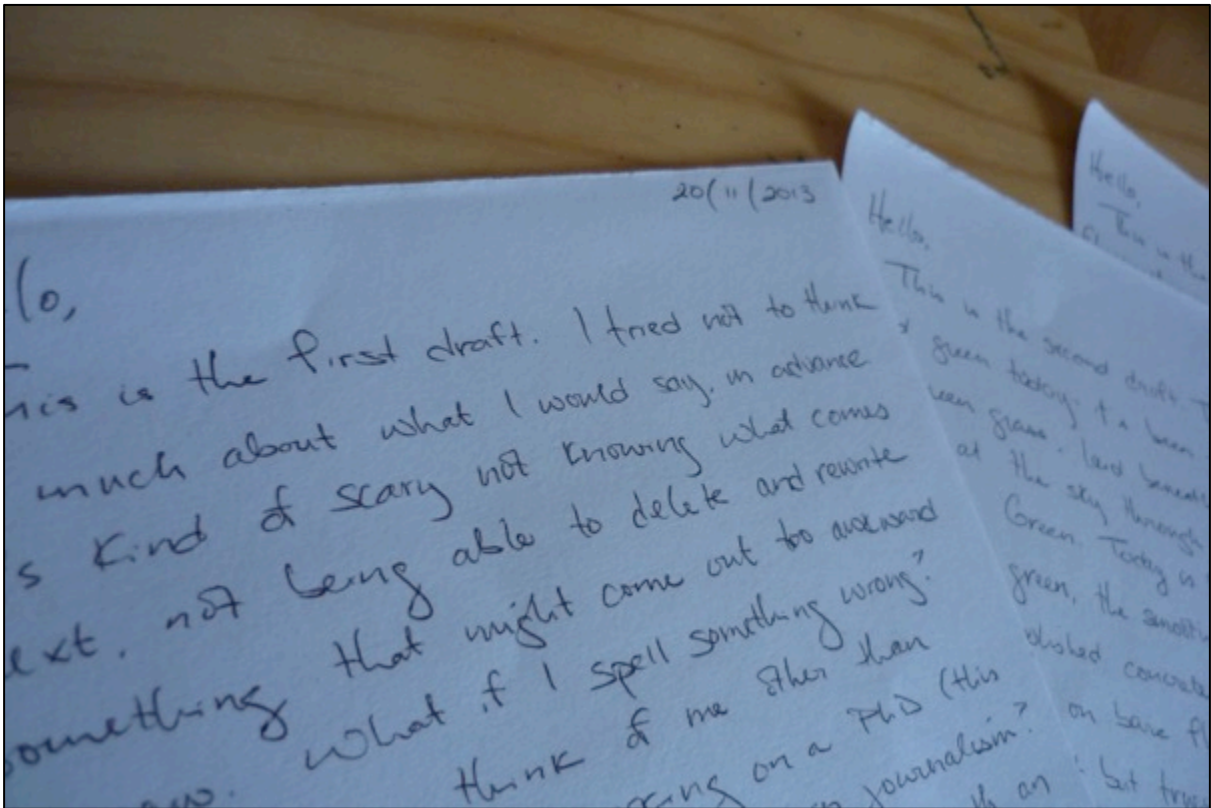 20/11/2013
lo,
his is the first draft. I tried not to think
much about what I would say in advance
s kind of scary not knowing what comes
ext, not being able to delete and rewrite
omething that might come out too awkward
What if I spell something wrong?
think of me other than
king on a PhD (this
journalism?
an
Hello,
This is the second draft.
green today.
grass.
at the sky through
Green. Today is
green, the
concrete
on bare
but
Hello,
This is the